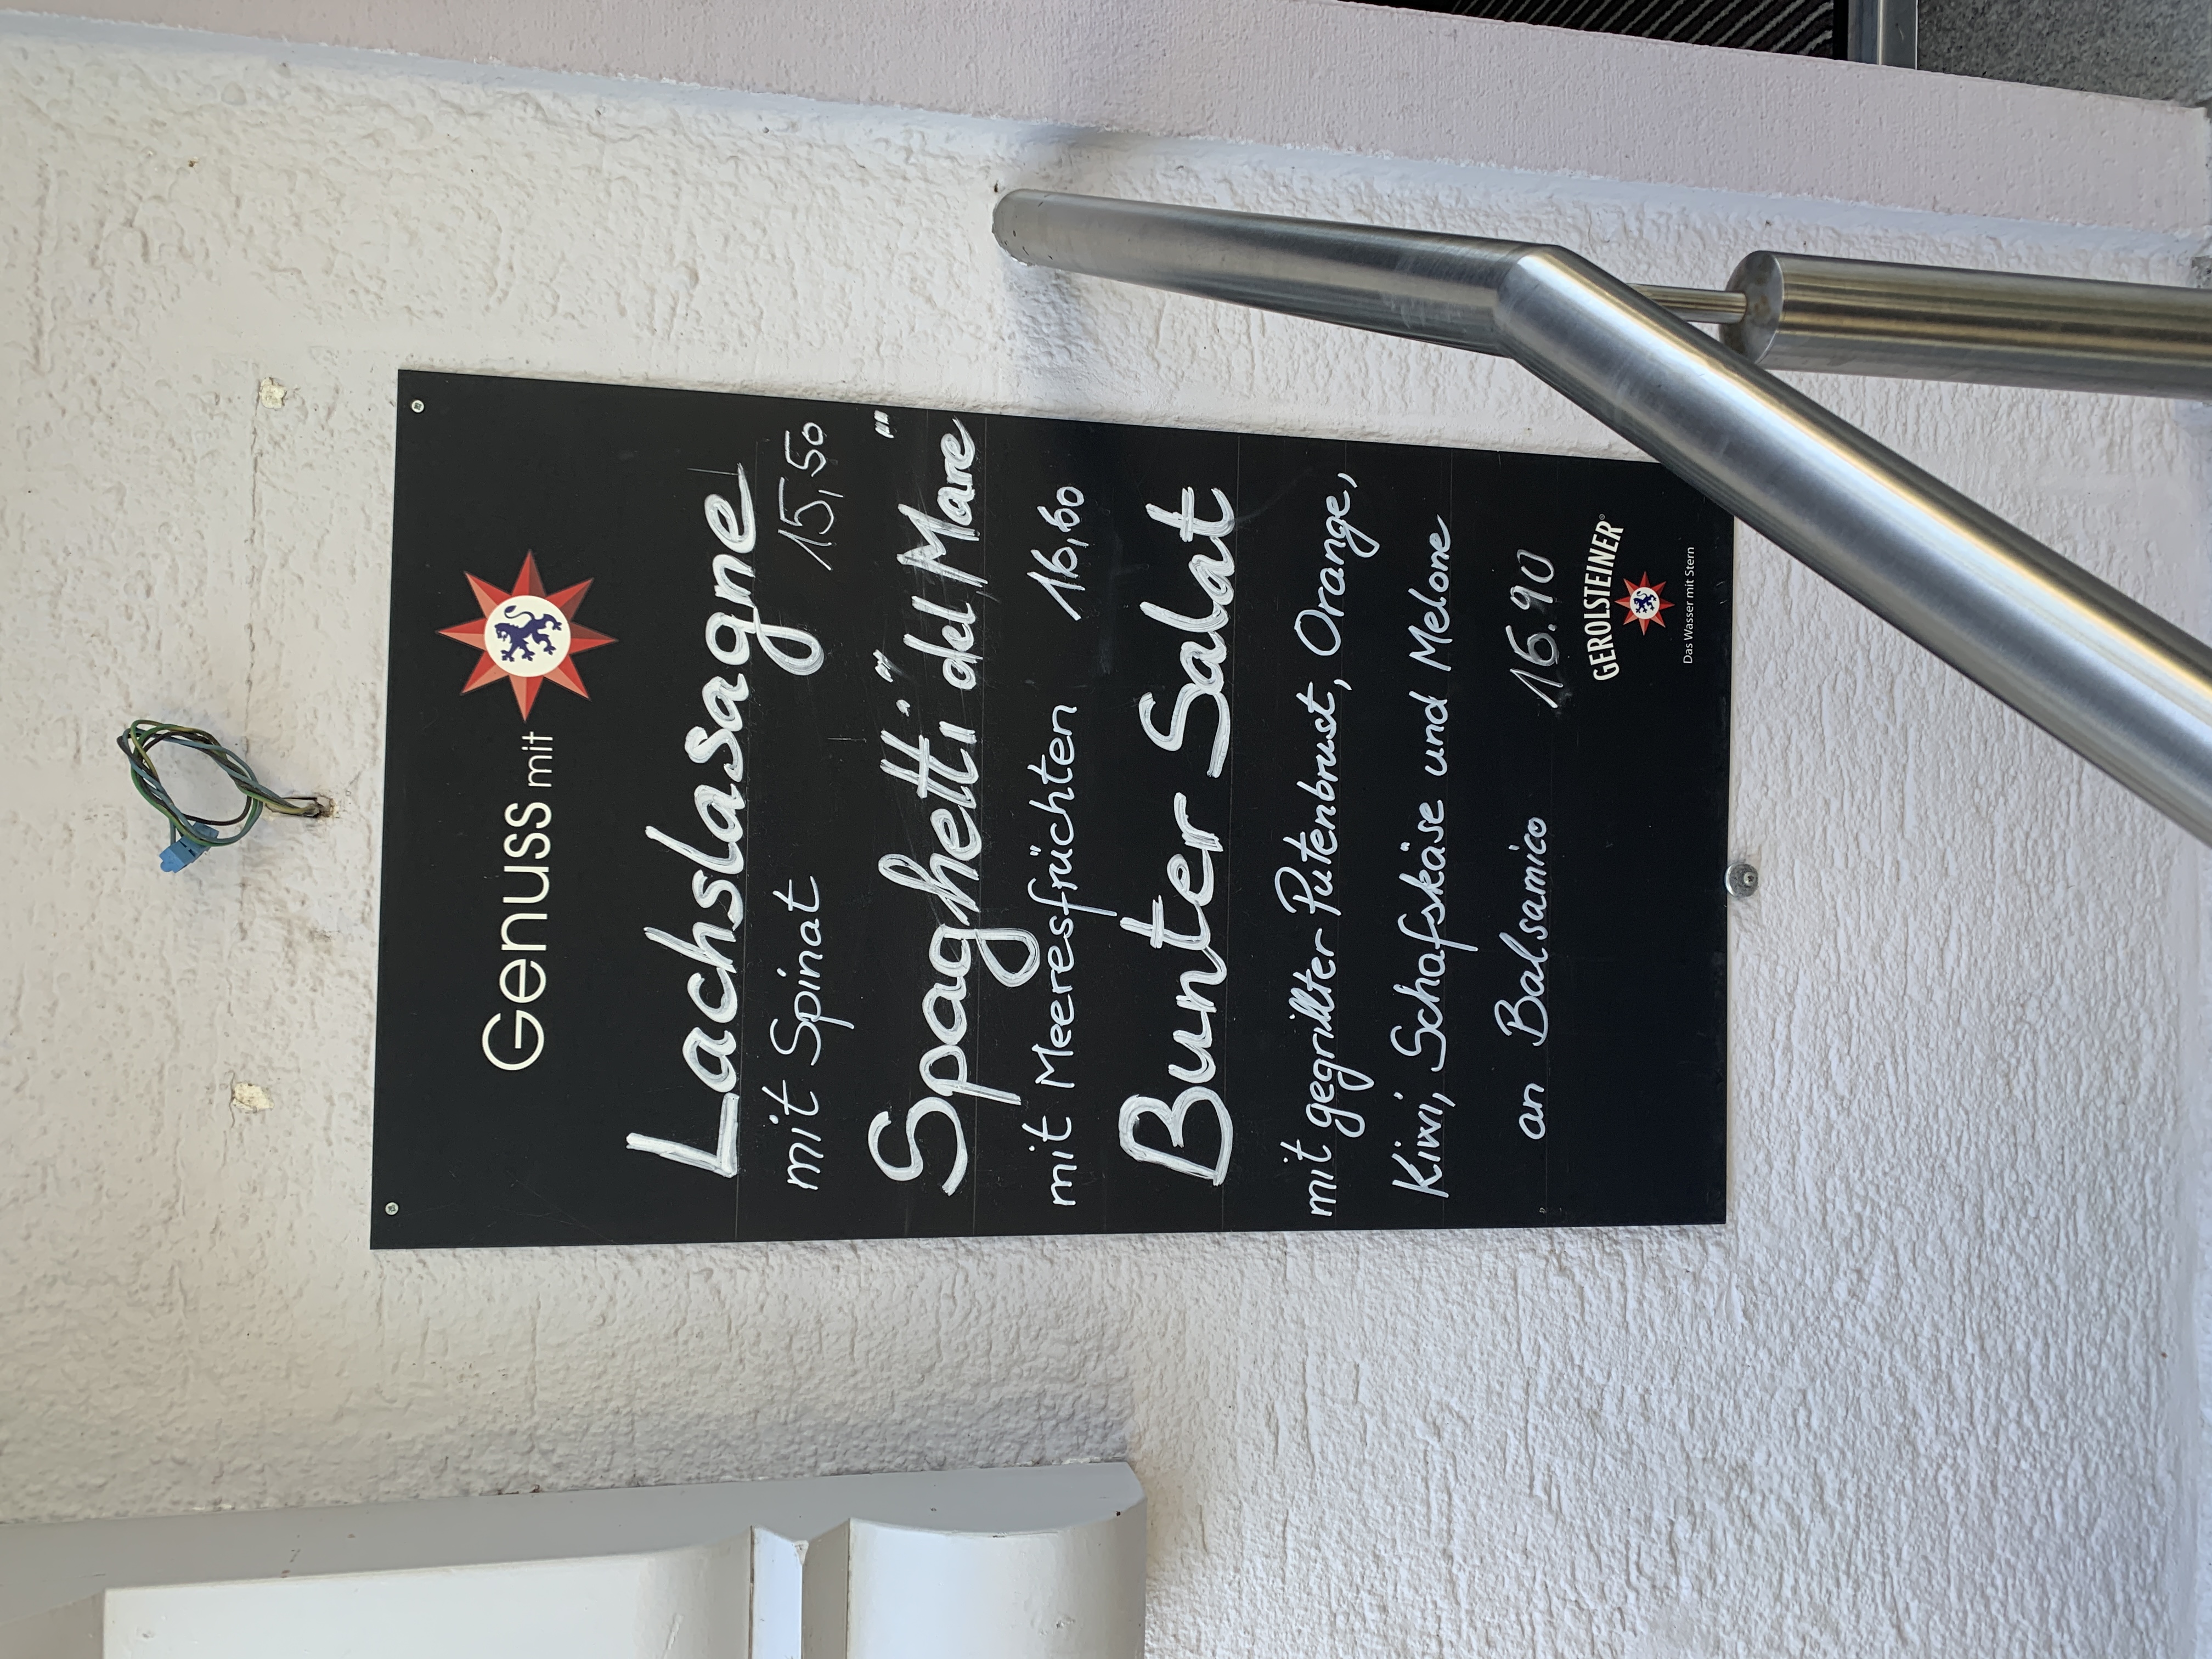 Genuss mit
Lachslasagne
mit Spinat 15,50
Spaghetti "del Mare"
mit Meeresfrüchten 16,60
Bunter Salat
mit gegrillter Putenbrust, Orange,
Kiwi, Schafskäse und Melone
an Balsamico 16.90
GEROLSTEINER
Das Wasser mit Stern